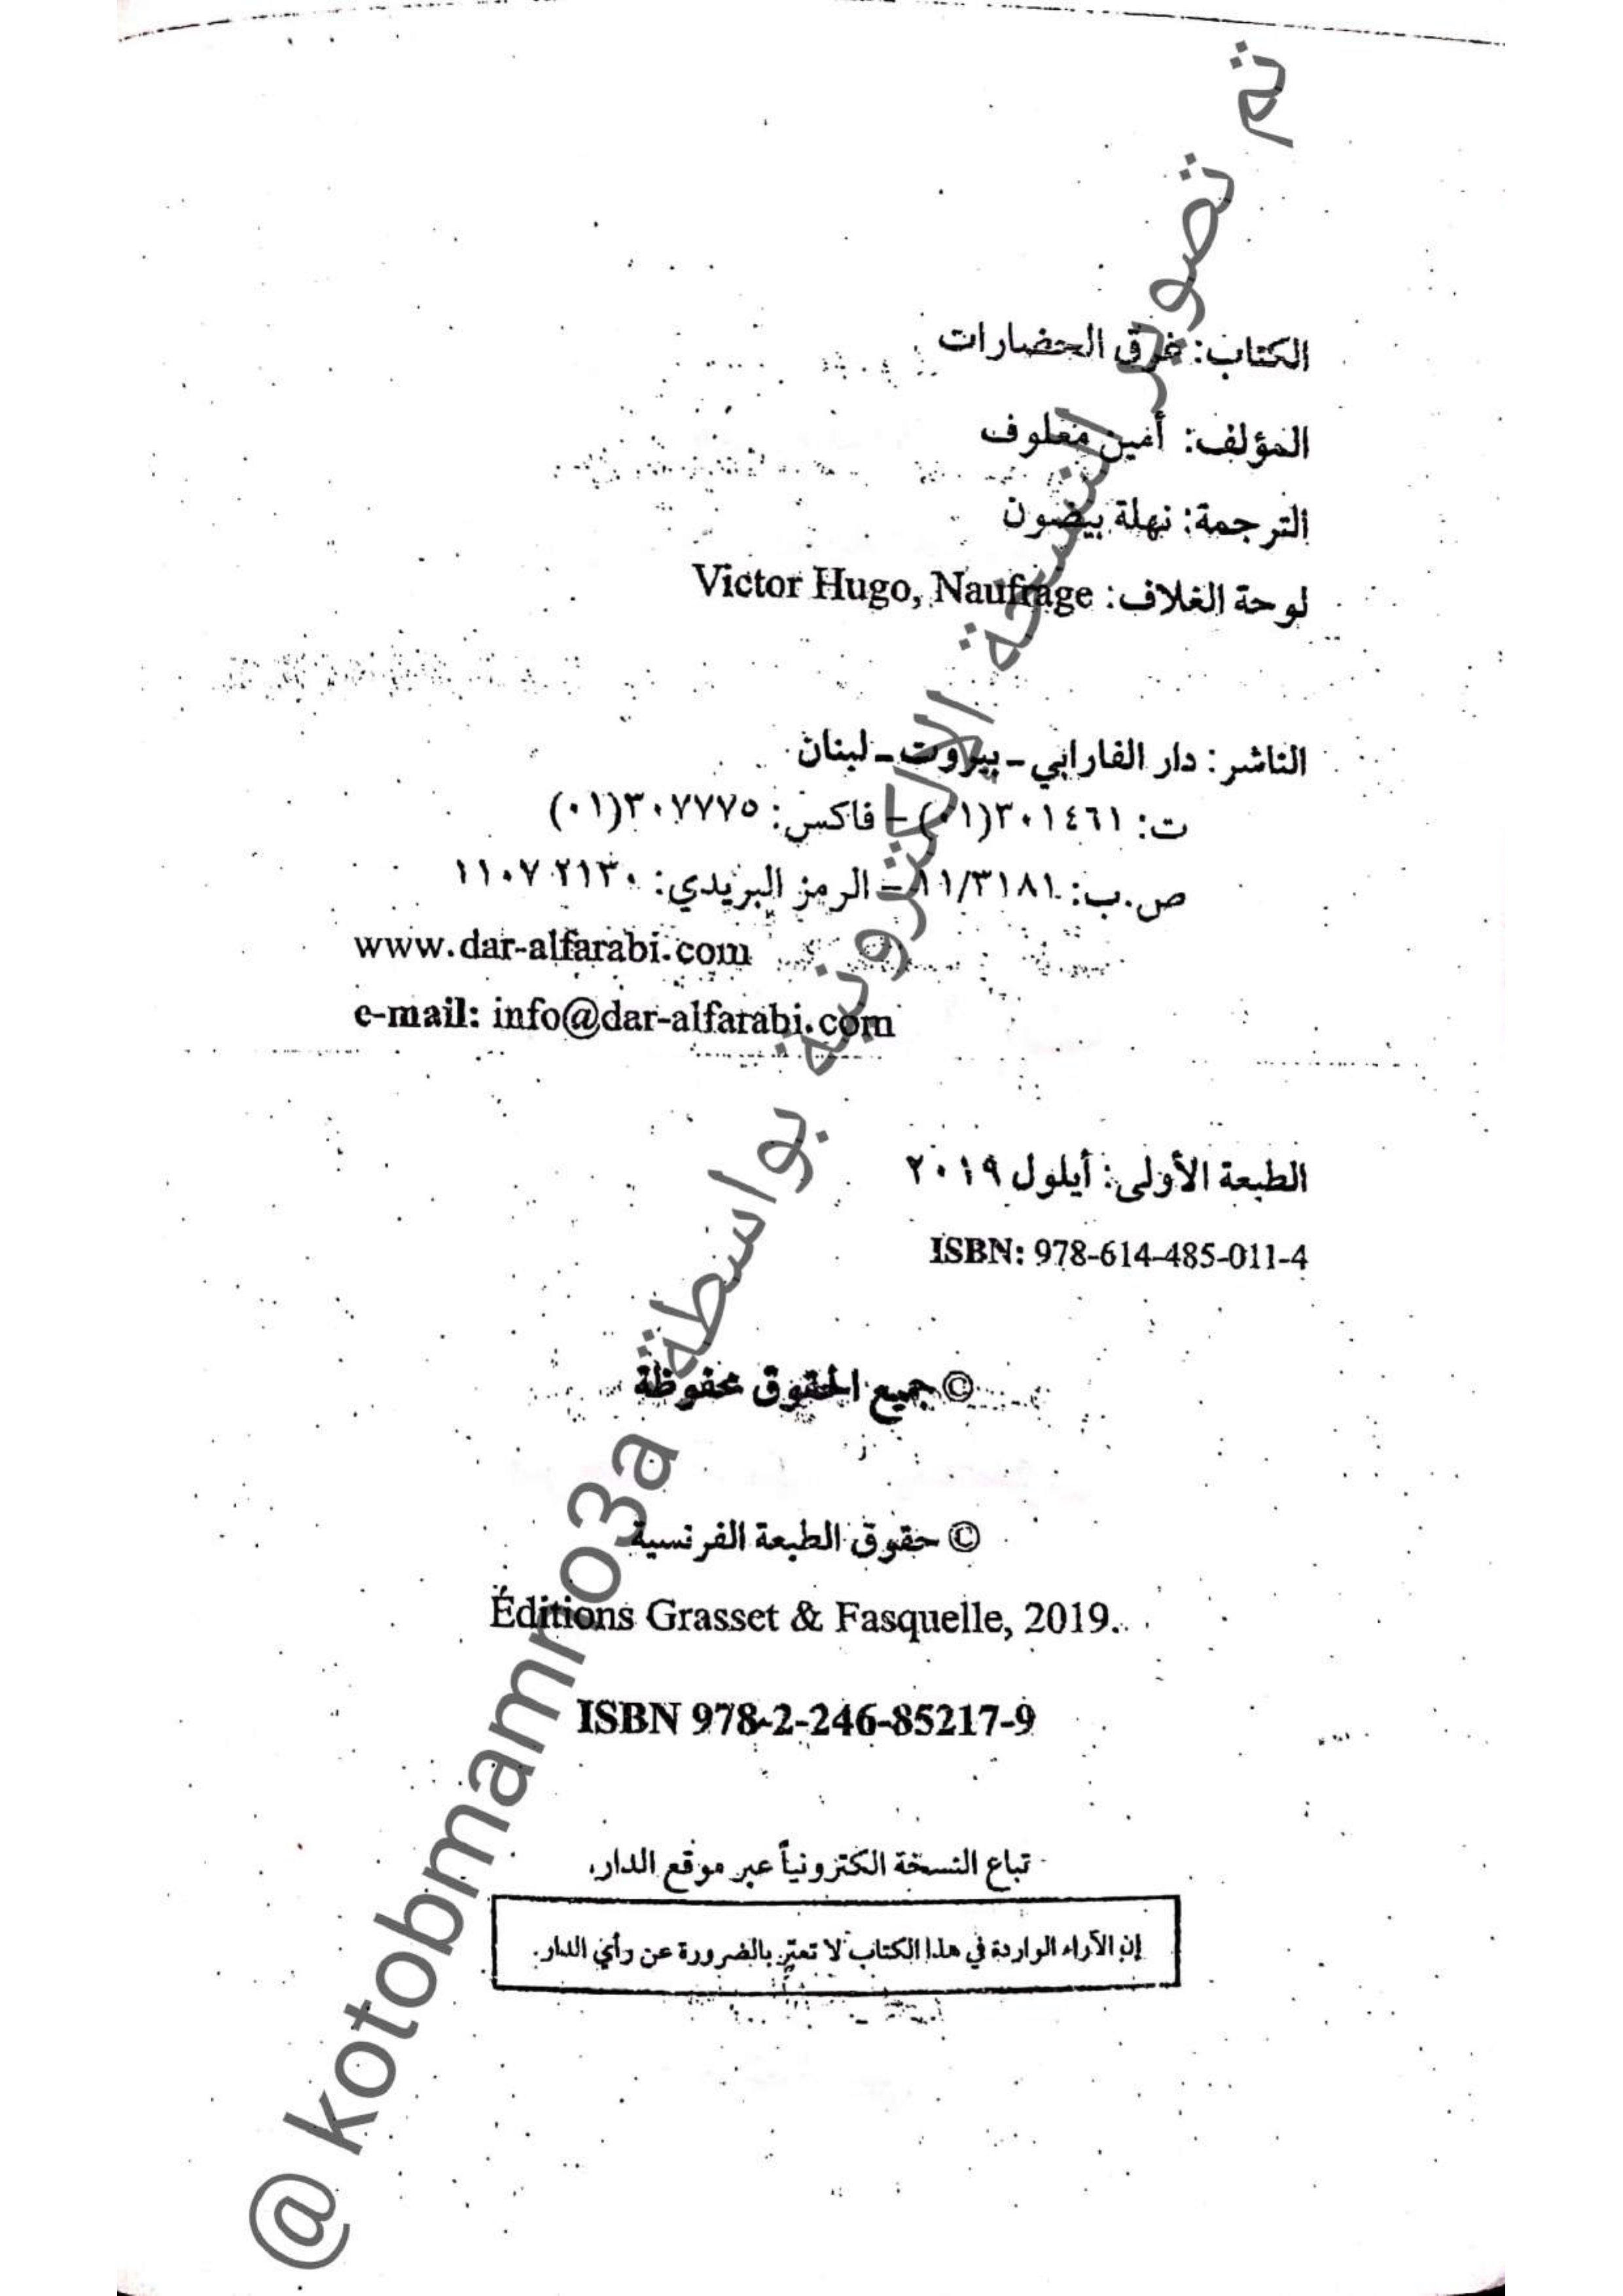 الكتاب: غرق الحضارات
المؤلف: أمين معلوف
الترجمة: نهلة بيضون
لوحة الغلاف: Victor Hugo, Naufrage
الناشر: دار الفارابي ـ بيروت ـ لبنان
ت: ٣٠١٤٦١(٠١) – فاكس: ٣٠٧٧٧٥(٠١)
ص.ب: ١١/٣١٨١ – الرمز البريدي: ٢١٣٠ ١١٠٧
www.dar-alfarabi.com
e-mail: info@dar-alfarabi.com
الطبعة الأولى: أيلول ٢٠١٩
ISBN: 978-614-485-011-4
© جميع الحقوق محفوظة
© حقوق الطبعة الفرنسية
Éditions Grasset & Fasquelle, 2019.
ISBN 978-2-246-85217-9
تباع النسخة الكترونياً عبر موقع الدار.
إن الآراء الواردة في هذا الكتاب لا تعبّر بالضرورة عن رأي الدار.
تم تصوير النسخة الإلكترونية بواسطة @kotobmamno3a